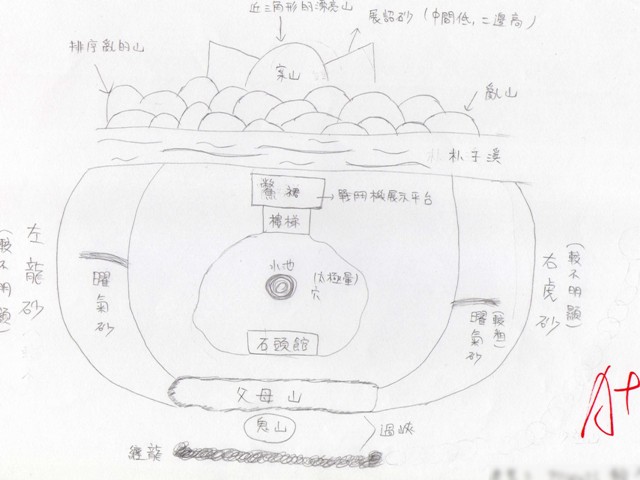 近三角形的漂亮山
展誥砂 (中間低,二邊高)
排序亂的山
案山
亂山
朴子溪
鱉裙
戰鬥機展示平台
樓梯
左龍砂
(較不明顯)
曜氣砂
水池
(太極暈)
穴
石頭館
(較粗)
曜氣砂
右虎砂
(較不明顯)
父母山
鬼山
過峽
繼龍
A+